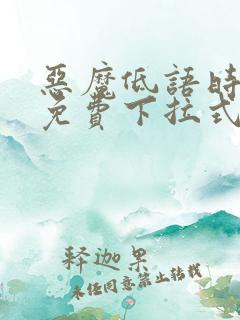 惡魔低語時
免費下拉式
释迦果
未经同意禁止转载